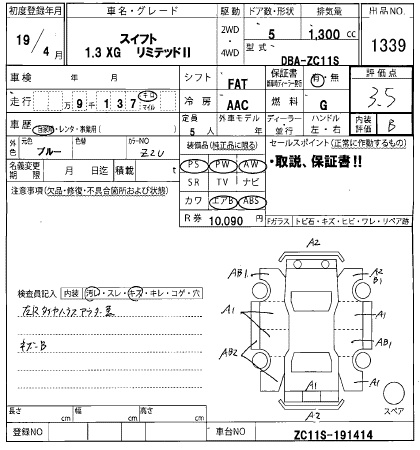 初度登録年月 車名・グレード 駆動 ドア数・形状 排気量 出品NO.
19/4月 スイフト 1.3 XG リミテッドⅡ 2WD・4WD 5 1,300 cc 1339
型式 DBA-ZC11S
車検 年 月 シフト FAT 保証書 有・無 評価点 3.5
走行 万 9千 137 キロ マイル 冷房 AAC 燃料 G
車歴 自家用・レンタ・事業用( ) 定員 5人 外車モデル 年 ディーラー・並行 ハンドル 左・右 内装評価 B
外色 元色 ブルー 色替 カラーNO Z2U 装備品(純正品に限る) セールスポイント(正常に作動するもの)
名義変更期限 月 日迄 積載 t PS PW AW ・取説、保証書!!
注意事項(欠品・修復・不具合箇所および状態) SR TV ナビ
カワ エアB ABS
R券 10,090 円 Fガラス トビ石・キズ・ヒビ・ワレ・リペア跡
A2
AB1 A2 B1
検査員記入 内装 汚レ・スレ・キズ・キレ・コゲ・穴
A1 A1
AB2 AB1
キズB
A1 A1
A2
スペア
長さ cm 幅 cm 高さ cm
登録NO 車台NO ZC11S-191414